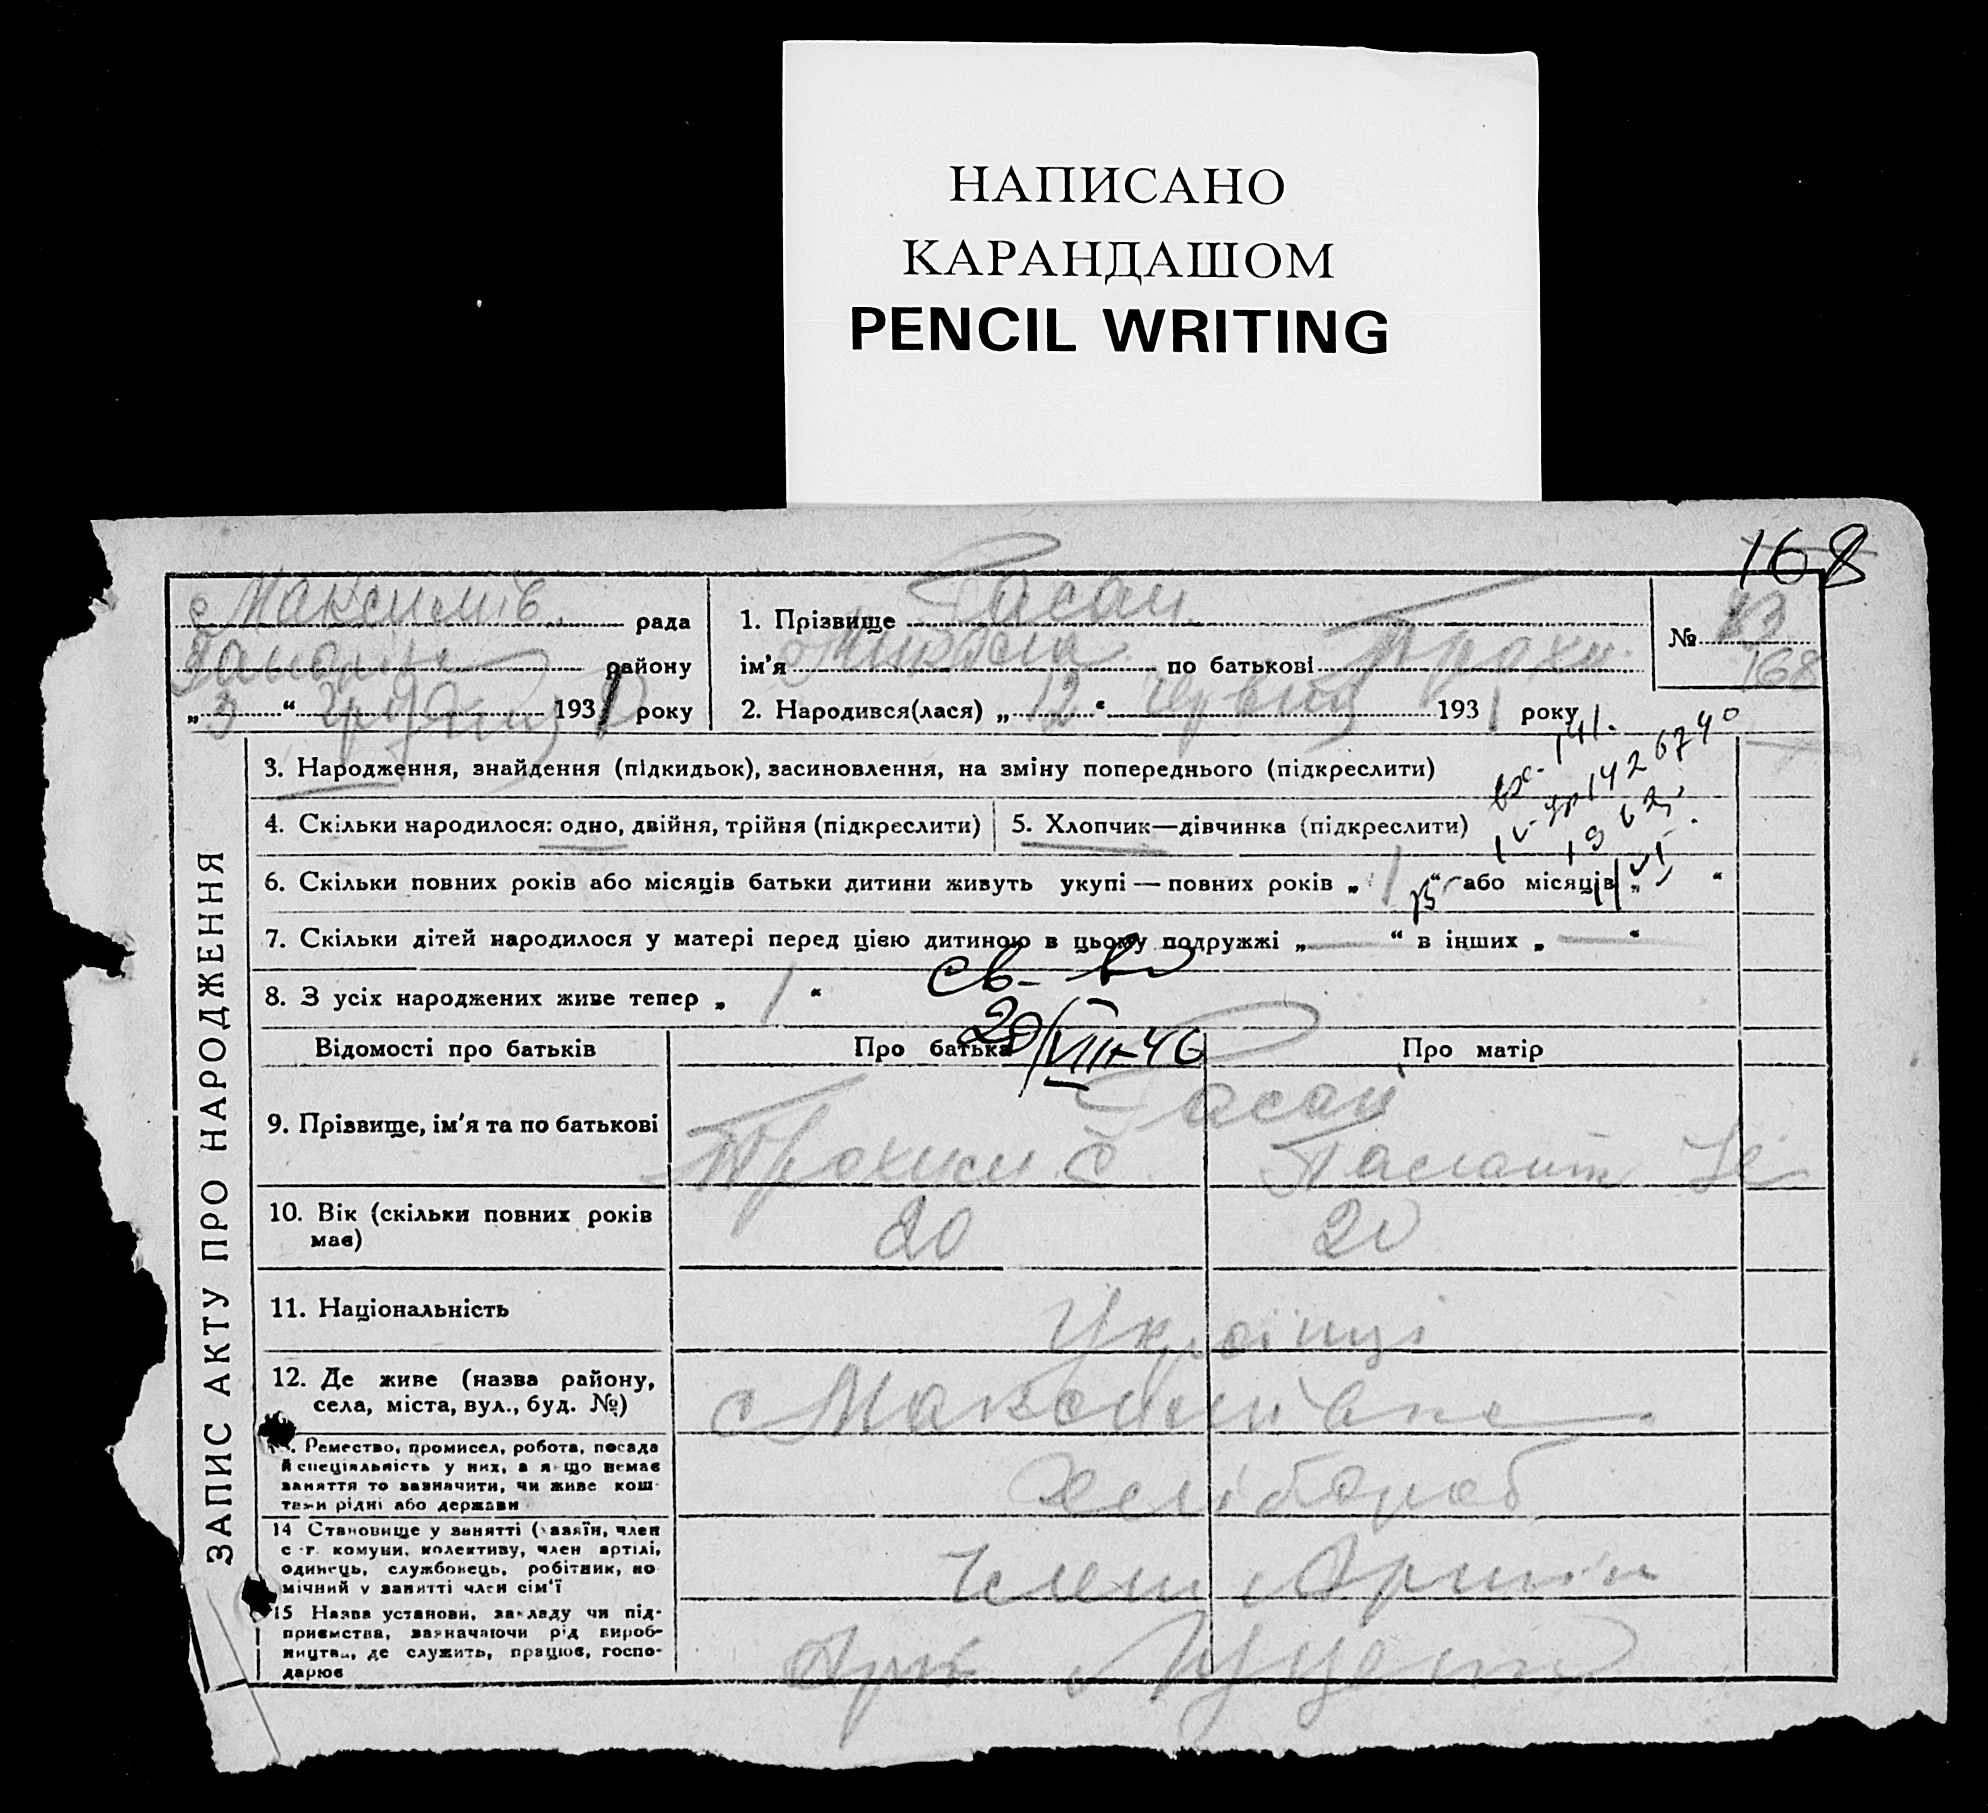 НАПИСАНО
КАРАНДАШОМ
PENCIL WRITING
168
с Максимів. рада
району
„ 3 “ Грудня 1931 року
1. Прізвище Гасан
ім’я Микола по батькові Трохи.
№
168
2. Народився(лася) „ 12 “ червня 1931 року
ЗАПИС АКТУ ПРО НАРОДЖЕННЯ
3. Народження, знайдення (підкидьок), засиновлення, на зміну попереднього (підкреслити)
4. Скільки народилося: одно, двійня, трійня (підкреслити)
5. Хлопчик—дівчинка (підкреслити)
6. Скільки повних років або місяців батьки дитини живуть укупі — повних років „ 1 “ або місяців „ “
7. Скільки дітей народилося у матері перед цією дитиною в цьому подружжі „ — “ в інших „ — “
8. З усіх народжених живе тепер „ 1 “
20/VIII-46
Відомості про батьків
Про батька
Про матір
9. Прізвище, ім’я та по батькові
Гасан
10. Вік (скільки повних років має)
20
20
11. Національність
Українці
12. Де живе (назва району, села, міста, вул., буд. №)
с Максимівка
Ремество, промисел, робота, посада й спеціяльність у них, а якщо немає заняття то зазначити, чи живе коштами рідні або держави
Хлібороб
14 Становище у занятті (хазяїн, член с.-г. комуни, колективу, член артілі, одинець, службовець, робітник, помічний у занятті член сім’ї
Член Артілі
15 Назва установи, закладу чи підприємства, зазначаючи рід виробництва, де служить, працює, господарює